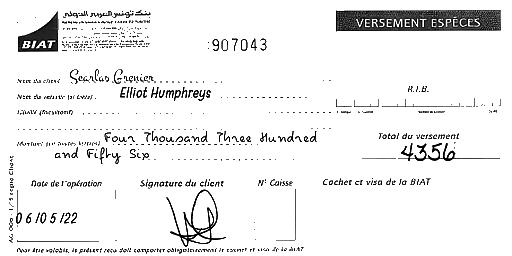 بنك تونس العربي الدولي
BIAT
VERSEMENT ESPÈCES
907043
Nom du client Searlas Grenier
Nom du verseur (si tiers) Elliot Humphreys
R.I.B.
Libellé (facultatif)
Montant (en toutes lettres) Four Thousand Three Hundred
and Fifty Six
Total du versement
4356
Date de l'opération
Signature du client
N° Caisse
Cachet et visa de la BIAT
06/05/22
Pour être valable, le présent reçu doit comporter obligatoirement le cachet et visa de la BIAT